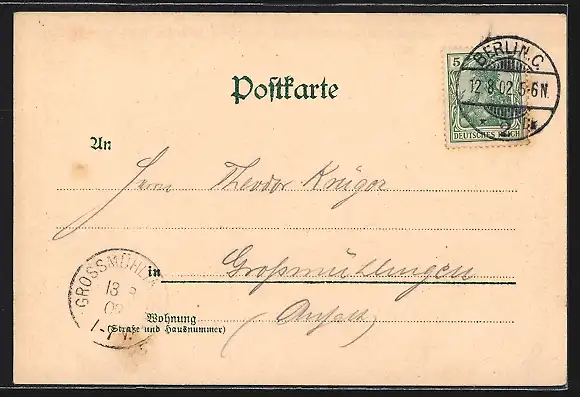 BERLIN.C.
5
12.8.02.5-6N.
2
DEUTSCHES REICH
Postkarte
An
Herrn Theodor Krüger
GROSSMÜHL
in Großmühlingen
13 8
02
1-
Wohnung
(Straße und Hausnummer)
(Anhalt)